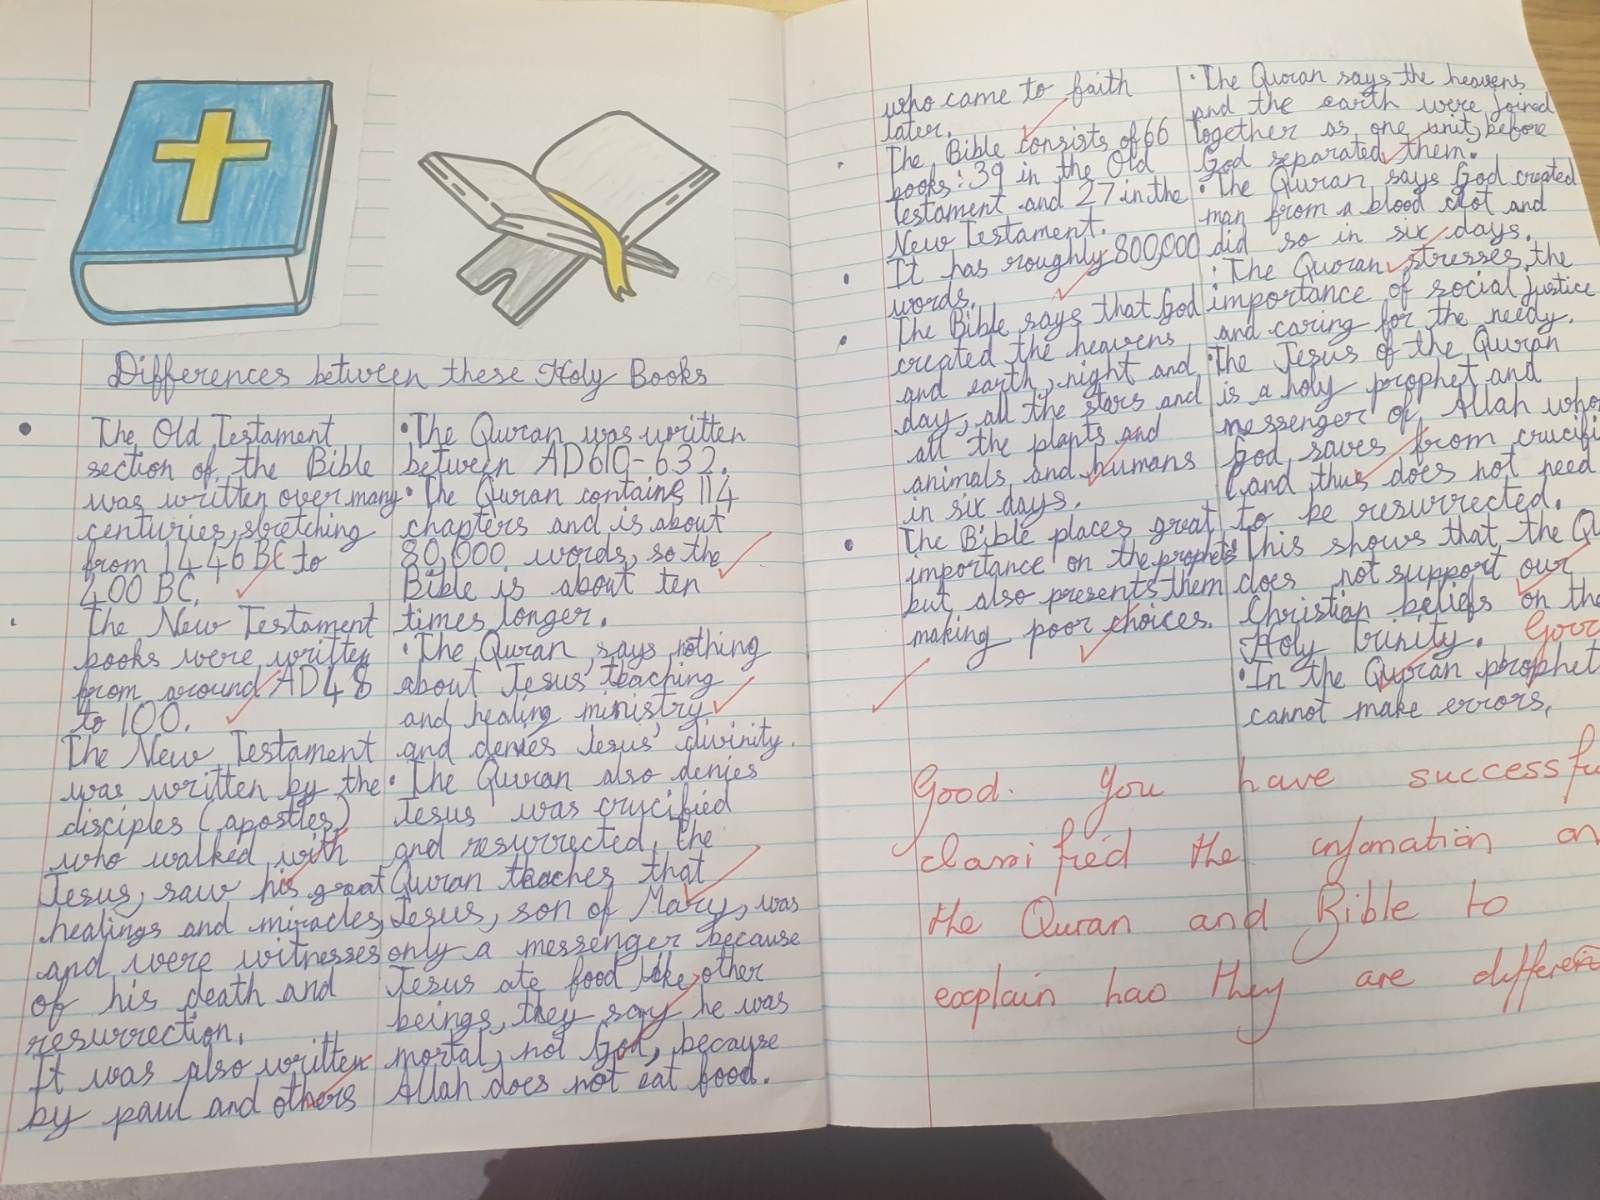 Differences between these Holy Books
The Old Testament
section of the Bible
was written over many
centuries, stretching
from 1446 BC to
400 BC.
The New Testament
books were written
from around AD48
to 100.
The New Testament
was written by the
disciples (apostles)
who walked with
Jesus, saw his great
healings and miracles,
and were witnesses
of his death and
resurrection.
It was also written
by paul and others
• The Quran was written
between AD610-632.
• The Quran contains 114
chapters and is about
80,000 words, so the
Bible is about ten
times longer.
• The Quran says nothing
about Jesus' teaching
and healing ministry
and denies Jesus' divinity.
• The Quran also denies
Jesus was crucified
and resurrected, the
Quran teaches that
Jesus, son of Mary, was
only a messenger because
Jesus ate food like other
beings, they say he was
mortal, not God, because
Allah does not eat food.
who came to faith
later.
The Bible consists of 66
books: 39 in the Old
testament and 27 in the
New Testament.
It has roughly 800,000
words.
The Bible says that God
created the heavens
and earth, night and
day, all the stars and
all the plants and
animals, and humans
in six days.
The Bible places great
importance on the prophets
but also presents them
making poor choices.
• The Quran says the heavens
and the earth were joined
together as one unit, before
God separated them.
• The Quran says God created
man from a blood clot and
did so in six days.
• The Quran stresses the
importance of social justice
and caring for the needy.
• The Jesus of the Quran
is a holy prophet and
messenger of Allah who
God saves from crucifi
(and thus does not need
to be resurrected.
This shows that the Qu
does not support our
Christian beliefs on the
Holy Trinity. Good
• In the Quran prophet
cannot make errors,
Good. You have successfu
classified the infomation on
the Quran and Bible to
explain hao they are different